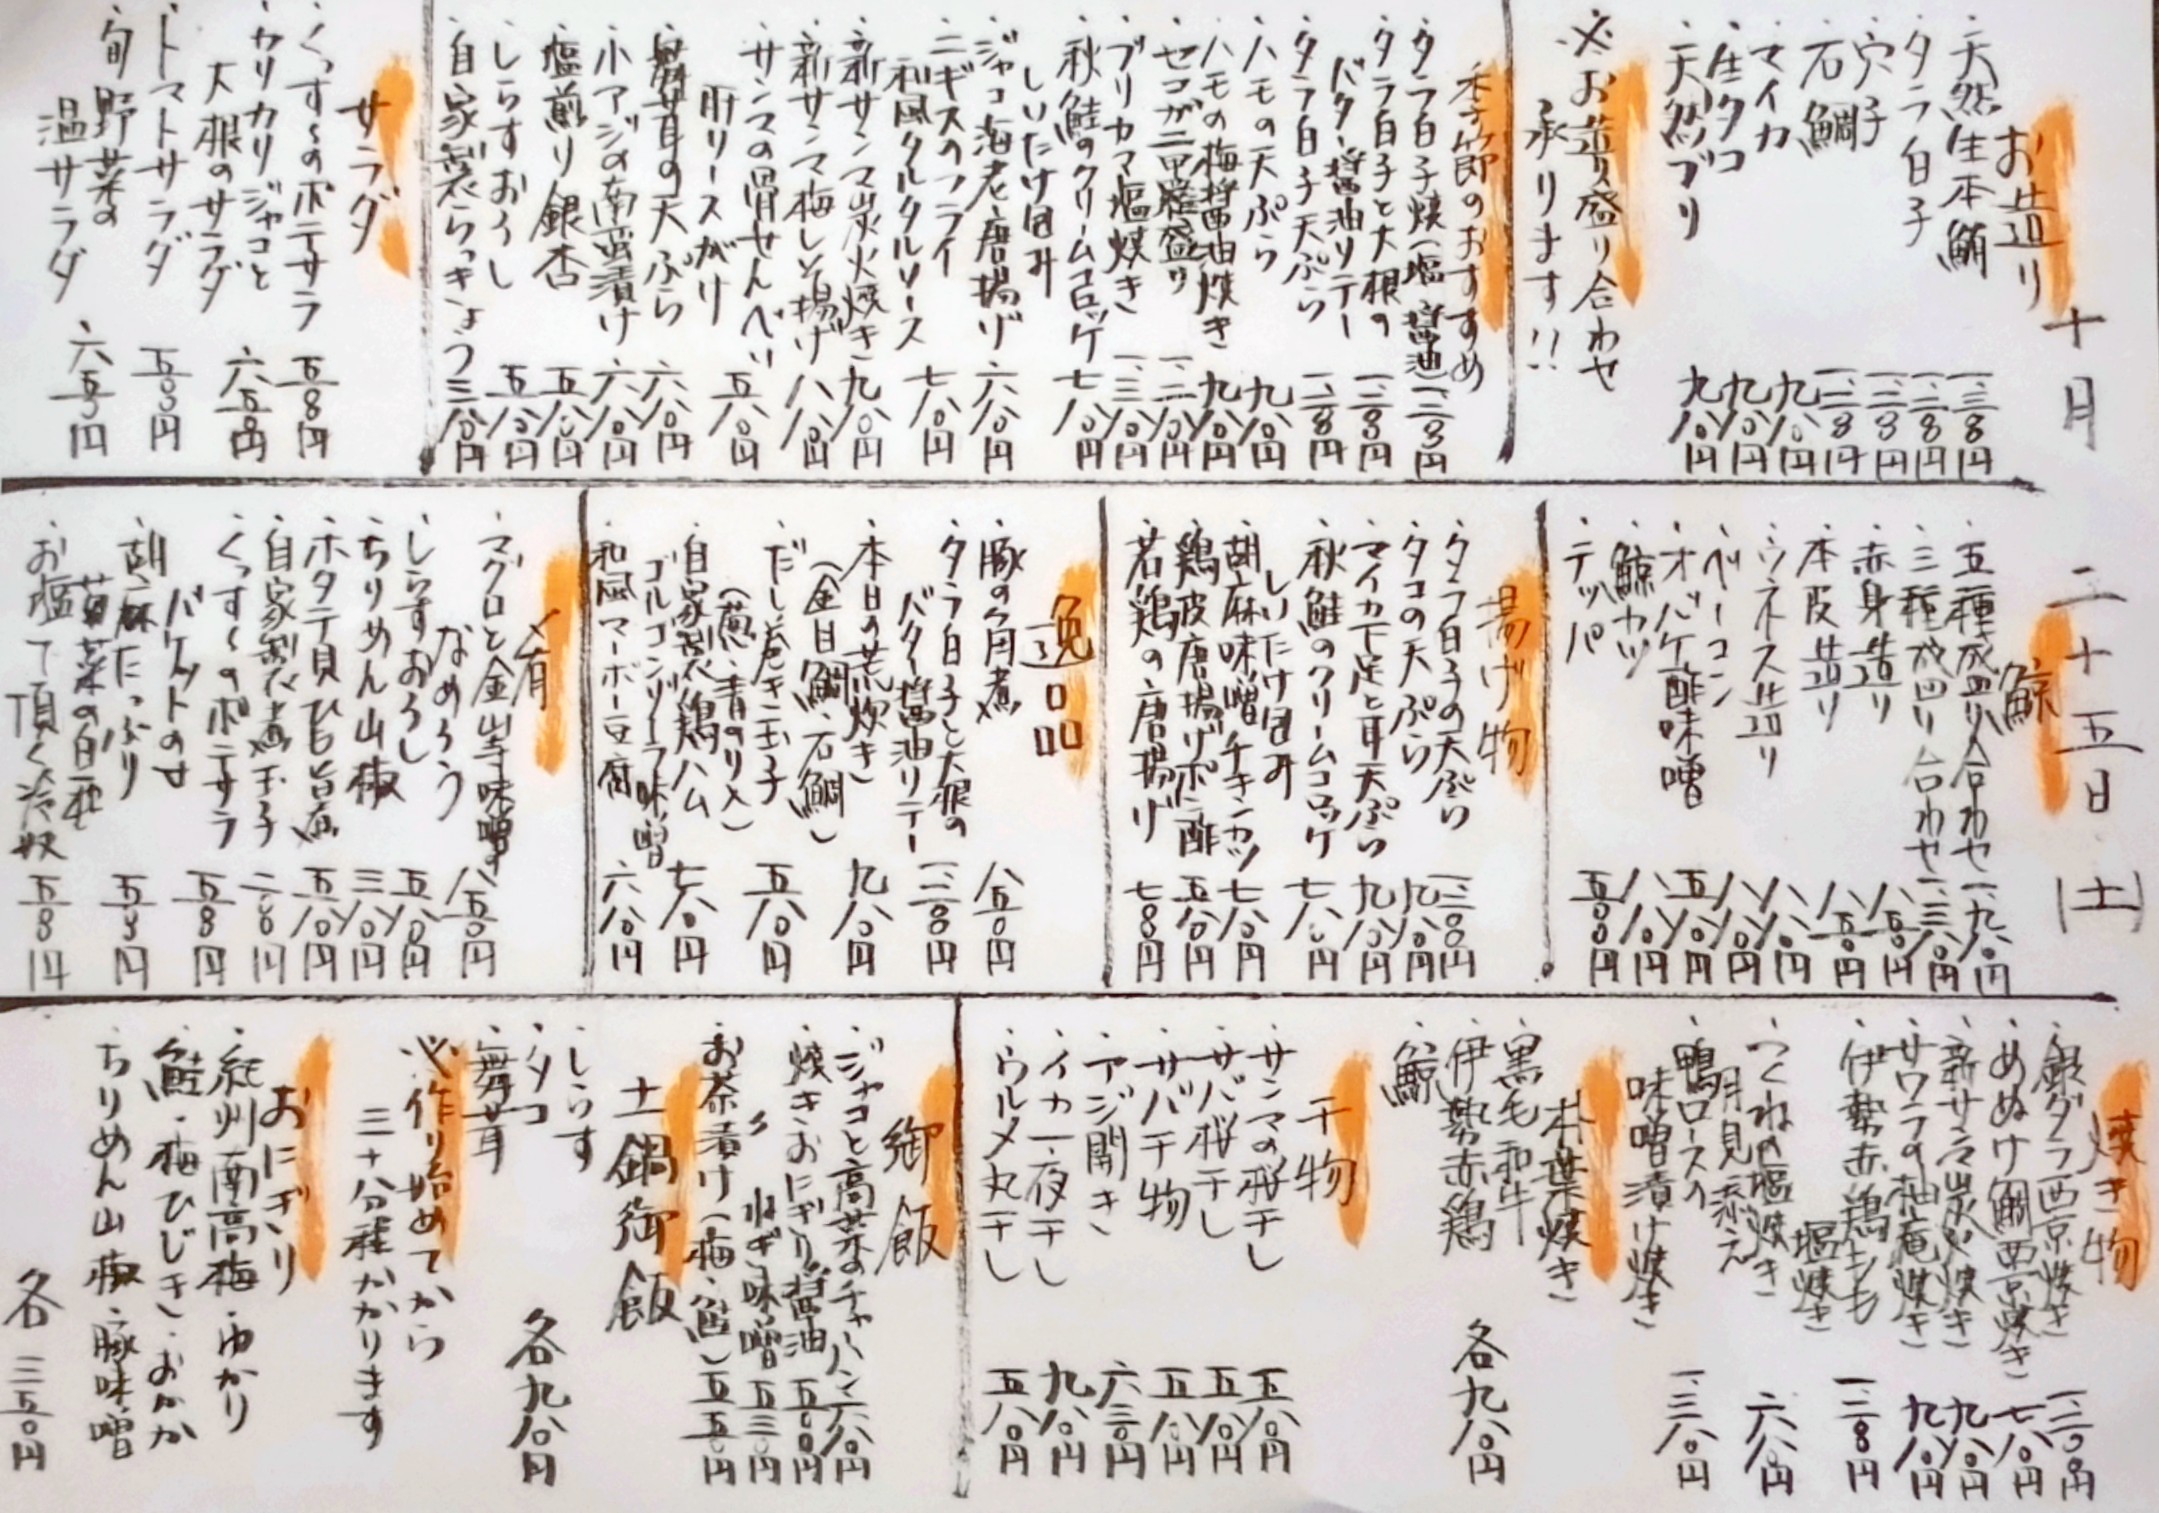 十月二十五日(土)
お造り
・天然生本鮪 一、三〇〇円
・タラ白子 一、二〇〇円
・穴子
・石鯛
・マイカ 九八〇円
・生タコ 九八〇円
・天然ブリ 九八〇円
※お造り盛り合わせ
承ります!!
季節のおすすめ
・タラ白子焼(塩・醤油)
・タラ白子と大根の
バター醤油ソテー
・タラ白子天ぷら
・ハモの天ぷら 九八〇円
・ハモの梅醤油焼き 九八〇円
・セコガニ甲羅盛り
・ブリカマ塩焼き
・秋鮭のクリームコロッケ 七八〇円
しいたけ包み
・ジャコ海老唐揚げ 六八〇円
・ニギスのフライ
和風タルタルソース 七八〇円
・新サンマ炭火焼き 九八〇円
・新サンマ梅しそ揚げ 八八〇円
・サンマの骨せんべい
肝リースがけ 五八〇円
・舞茸の天ぷら 六八〇円
・小アジの南蛮漬け 六八〇円
・塩煎り銀杏 五八〇円
・しらすおろし 五八〇円
・自家製らっきょう 三八〇円
サラダ
・くっす〜のポテサラ 五〇〇円
・カリカリジャコと
大根のサラダ 六五〇円
・トマトサラダ 五〇〇円
・旬野菜の
温サラダ 六五〇円
鯨
・五種盛り合わせ 一、九八〇円
・三種盛り合わせ 一、三八〇円
・赤身造り 八五〇円
・本皮造り 八五〇円
・ウネス造り 八八〇円
・ベーコン 八八〇円
・オバケ酢味噌 五八〇円
・鯨カツ 八八〇円
・テッパ 五〇〇円
揚げ物
・タラ白子の天ぷら
・タコの天ぷら 九八〇円
・マイカ下足と耳天ぷら 九八〇円
・秋鮭のクリームコロッケ 七八〇円
しいたけ包み
・胡麻味噌チキンカツ 七八〇円
・鶏皮唐揚げポン酢 五八〇円
・若鶏の唐揚げ 七〇〇円
逸品
・豚の角煮 八五〇円
・タラ白子と大根の
バター醤油ソテー
・本日の荒炊き 九八〇円
(金目鯛・石鯛)
・だし巻き玉子 五八〇円
(葱・青のり入)
・自家製鶏ハム 七八〇円
ゴルゴンゾーラ味噌
・和風マーボー豆腐 六八〇円
肴
・マグロと金山寺味噌の 八五〇円
なめろう
・しらすおろし 五八〇円
・ちりめん山椒 三八〇円
・ホタテ貝ひも旨煮 五八〇円
・自家製煮玉子 二〇〇円
・くっす〜のポテサラ 五〇〇円
バケットのせ
・胡麻たっぷり
菊菜の白和え
・お塩で頂く冷奴 五〇〇円
焼き物
・銀ダラ西京焼き
・めぬけ鯛西京焼き
・新サンマ炭火焼き 九八〇円
・サワラの柚庵焼き 九八〇円
・伊勢赤鶏もも
塩焼き
・つくねの塩焼き 六八〇円
月見添え
・鴨ロース
味噌漬け焼き 一、三八〇円
朴葉焼き
・黒毛和牛
・伊勢赤鶏
・鯨
各九八〇円
干物
・サンマの桜干し 五八〇円
・サバ桜干し 五八〇円
・サバ干物 五八〇円
・アジ開き 六三〇円
・イカ一夜干し 九八〇円
・ウルメ丸干し 五八〇円
御飯
・ジャコと高菜のチャーハン 六八〇円
・焼きおにぎり醤油 五〇〇円
〃 ねぎ味噌 五三〇円
・お茶漬け(梅・鮭) 五五〇円
土鍋御飯
・しらす
・タコ
・舞茸
各九八〇円
※作り始めてから
三十分程かかります
おにぎり
・紀州南高梅・ゆかり
・鮭・梅ひじき・おかか
・ちりめん山椒・豚味噌
各三五〇円